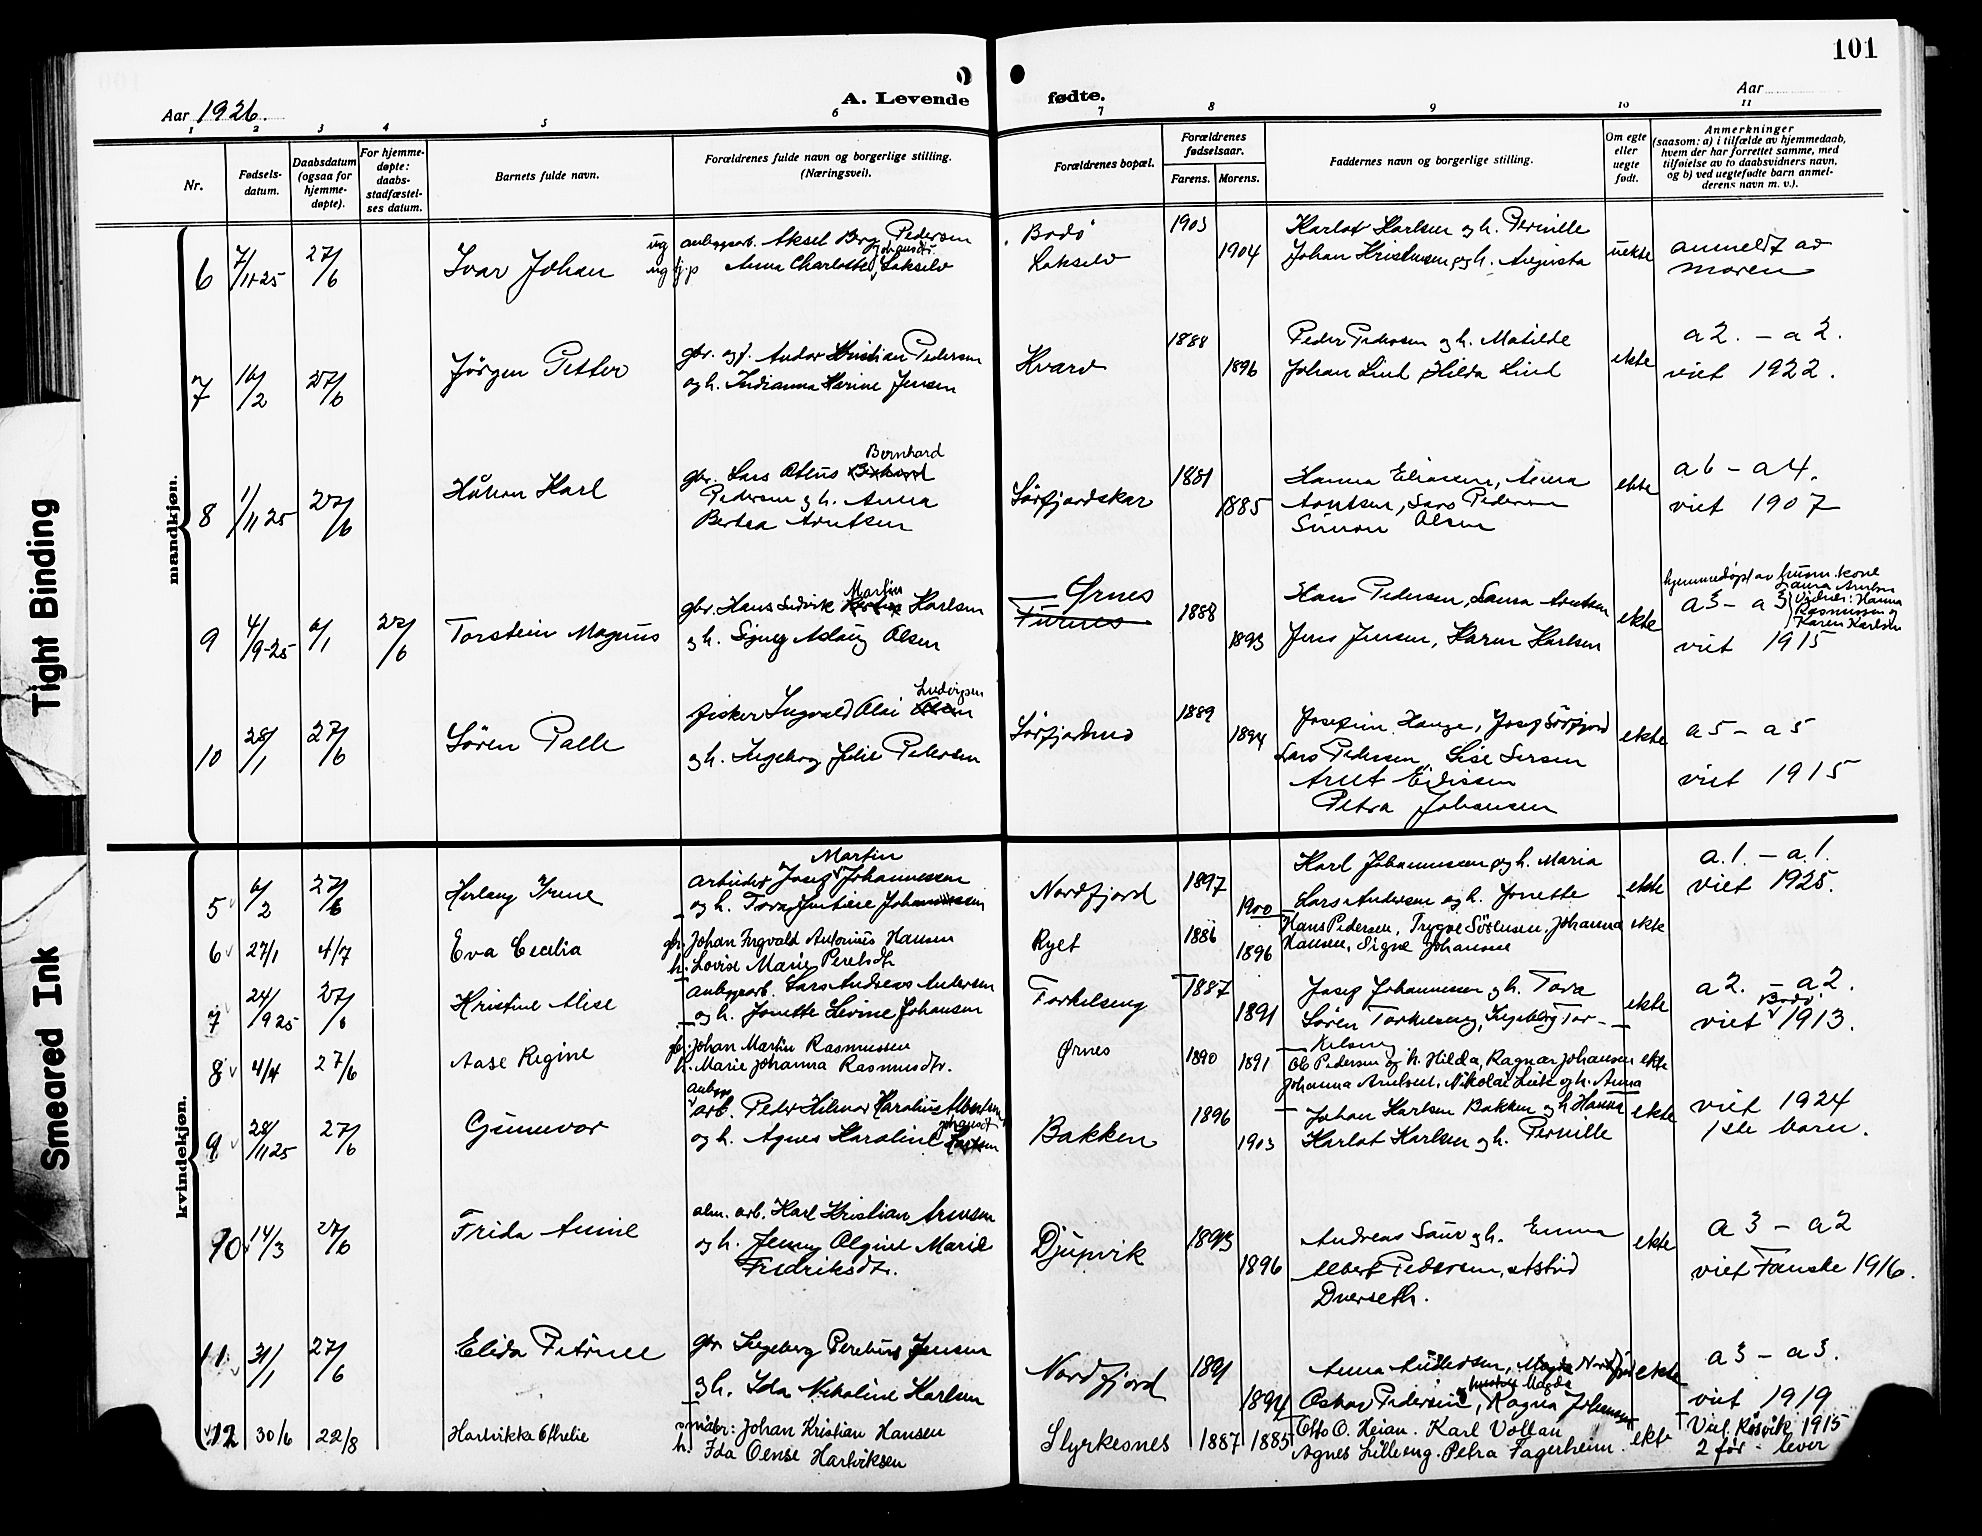 101
Aar 1926.
A. Levende
fødte.
Aar
1 2 3 4 5 6 7 8 9 10 11
Nr.
Fødsels-
datum.
Daabsdatum
(ogsaa for
hjemme-
døpte).
For hjemme-
døpte:
daabs-
stadfæstel-
ses datum.
Barnets fulde navn.
Forældrenes fulde navn og borgerlige stilling.
(Næringsvei).
Forældrenes bopæl.
Forældrenes
fødselsaar.
Farens. Morens.
Faddernes navn og borgerlige stilling.
Om egte
eller
uegte
født.
Anmerkninger
(saasom: a) i tilfælde av hjemmedaab,
hvem der har forrettet samme, med
tilføielse av to daabsvidners navn,
og b) ved uegtefødte barn anmel-
derens navn m. v.).
mandkjøn.
6 7/11-25 27/6 Ivar Johan
ug anleggsarb. Aksel Berg Pedersen
ug Anna Charlotte Johansdtr. Lakselv
Bodö
Lakselv
1903
1904
Karlot Karlsen og h. Pernille
Johan Kristensen og h. Augusta
uekte
anmeldt av
moren
7 16/2 27/6 Jörgen Petter
gbr. og f. Andor Kristian Pedersen
og h. Indianna Karine Jensen
Kvarv
1888
1896
Peder Pedersen og h. Matilde
Johan Lind, Hilda Lind
ekte
a2. - a2.
viet 1922.
8 1/11 25 27/6 Håkon Karl
Bernhard
gbr. Lars Oleus
Pedersen og h. Anna
Bertea Arntsen
Sörfjordskar
1881
1885
Hanna Eliasen, Anna
Arntsen, Lars Pedersen
Simon Olsen
ekte
a6 - a4.
viet 1907
9 4/9-25 6/1 27/6 Torstein Magnus
Martin
gbr. Hans Ludvik Karlsen
og h. Signy Aslaug Olsen
Ørnes
Furnes
1888
1893
Hans Pedersen, Laura Arntsen
Jens Jensen, Karen Karlsen
ekte
hjemmedöpt av husm. kone
Laura Arntsen
Vidner: Hanna
Rasmussen og
Karen Karlsen
a3 - a3
viet 1915
10 28/1 27/6 Sören Palle
Ludvigsen
fisker Ingvald Olai Olsen
og h. Ingeborg Julie Pettersen
Sörfjordmo
1889
1894
Josefine Hauge, Josef Sörfjord
Lars Pedersen, Lise Larsen
Arnt Eidissen
Petra Johansen
ekte
a5 - a5
viet 1915
kvindekjøn.
5 6/2 27/6 Herlaug Irene
Martin
arbeider Josef Johannessen
og h. Tora Justine Johannessen
Nordfjord
1897
1900
Karl Johannessen og h. Maria
Lars Andersen og h. Jonette
ekte
a.1. - a.1.
viet 1925.
6 27/1 4/7 Eva Cecilia
gbr. Johan Ingvald Antonius Hansen
h. Lovise Marie Perelsdtr
Ryet
1886
1896
Hans Pedersen, Trygve Sörensen, Johanna
Hansen, Signe Johansen
ekte
7 24/9 25 27/6 Kristine Alise
anleggsarb. Lars Andreas Andersen
og h. Jonette Levine Johansen
Torkelseng
1887
1891
Josef Johannessen og h. Tora
Sören Torkelseng, Ingeborg Tor-
kelseng
ekte
a2. - a2.
Bodö
viet 1913.
8 4/4 27/6 Aase Regine
gbr. Johan Martin Rasmussen
h. Marie Johanna Rasmusdtr.
Ørnes
1890 1891
Ole Pedersen og h. Hilda, Ragnar Johansen
Johanna Arntsen, Nikolai Leite og h. Anna
ekte
9 28/11 25 27/6 Gunnvor
anlegg
arb. Peder Hilmar Haralius Albertsen
og h. Agnes Karoline
Bakken
1896
1903
Johan Karlsen Bakken og h. Hanna
Karlot Karlsen og h. Pernille
ekte
viet 1924
1ste barn.
10 14/3 27/6 Frida Annie
alm. arb. Karl Kristian Arnesen
og h. Jenny Olgine Marie
Fredriksdtr.
Djupvik
1893
1896
Andreas Saur og h. Emma
Albert Pedersen, Astrid
Dverseth.
ekte
a3 - a2
viet Fauske 1916.
11 31/1 27/6 Elida Petrine
gbr Ingeberg Perelius Jensen
og h. Ida Nikoline Karlsen
Nordfjord
1891
1894
Anna Andersen, Magda Nordfjord
Oskar Pedersen, Ragna Johansen
ekte
a3 - a3.
viet 1919
12 30/6 22/8 Hartvikka Othelie
småbr: Johan Kristian Hansen
h. Ida Oense Hartviksen
Styrkesnes
1887 1885
Otto O. Heian. Karl Voltan
Agnes Lilleeng. Petra Fagerheim.
ekte
Viet Røsvik 1915
2 før - lever
Tight Binding
Smeared Ink